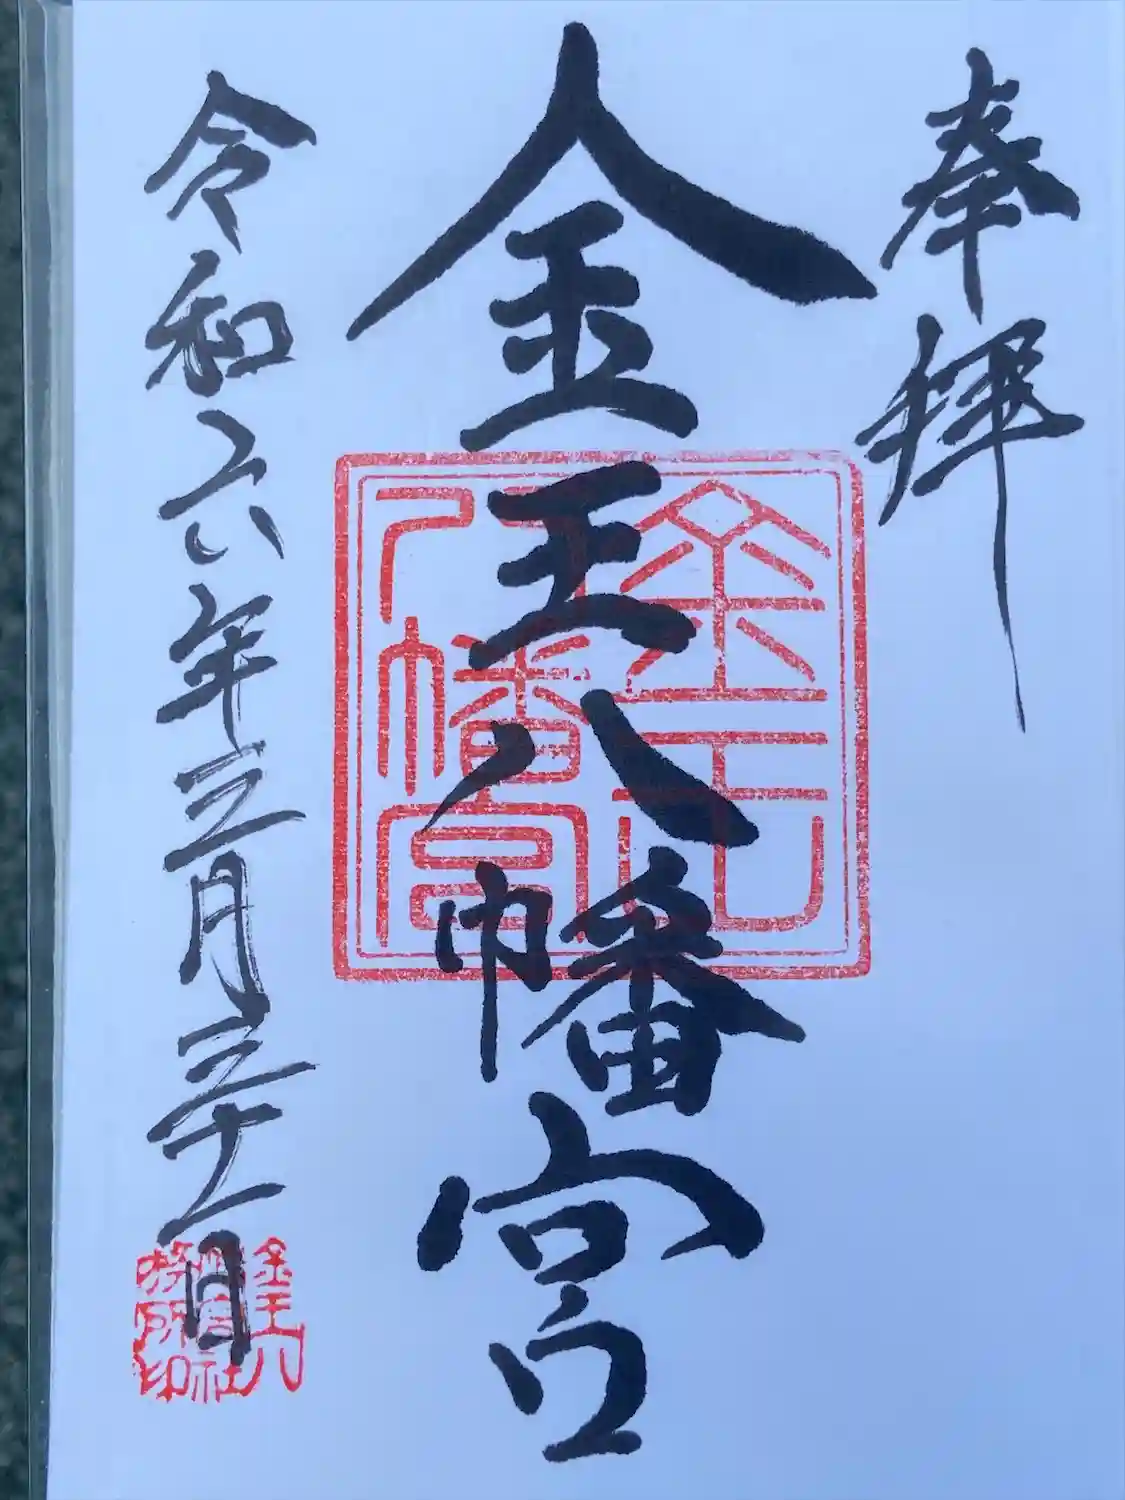 奉拝
金王八幡宮
令和六年三月三十一日
金王八幡宮
金王八
幡宮社
務所印